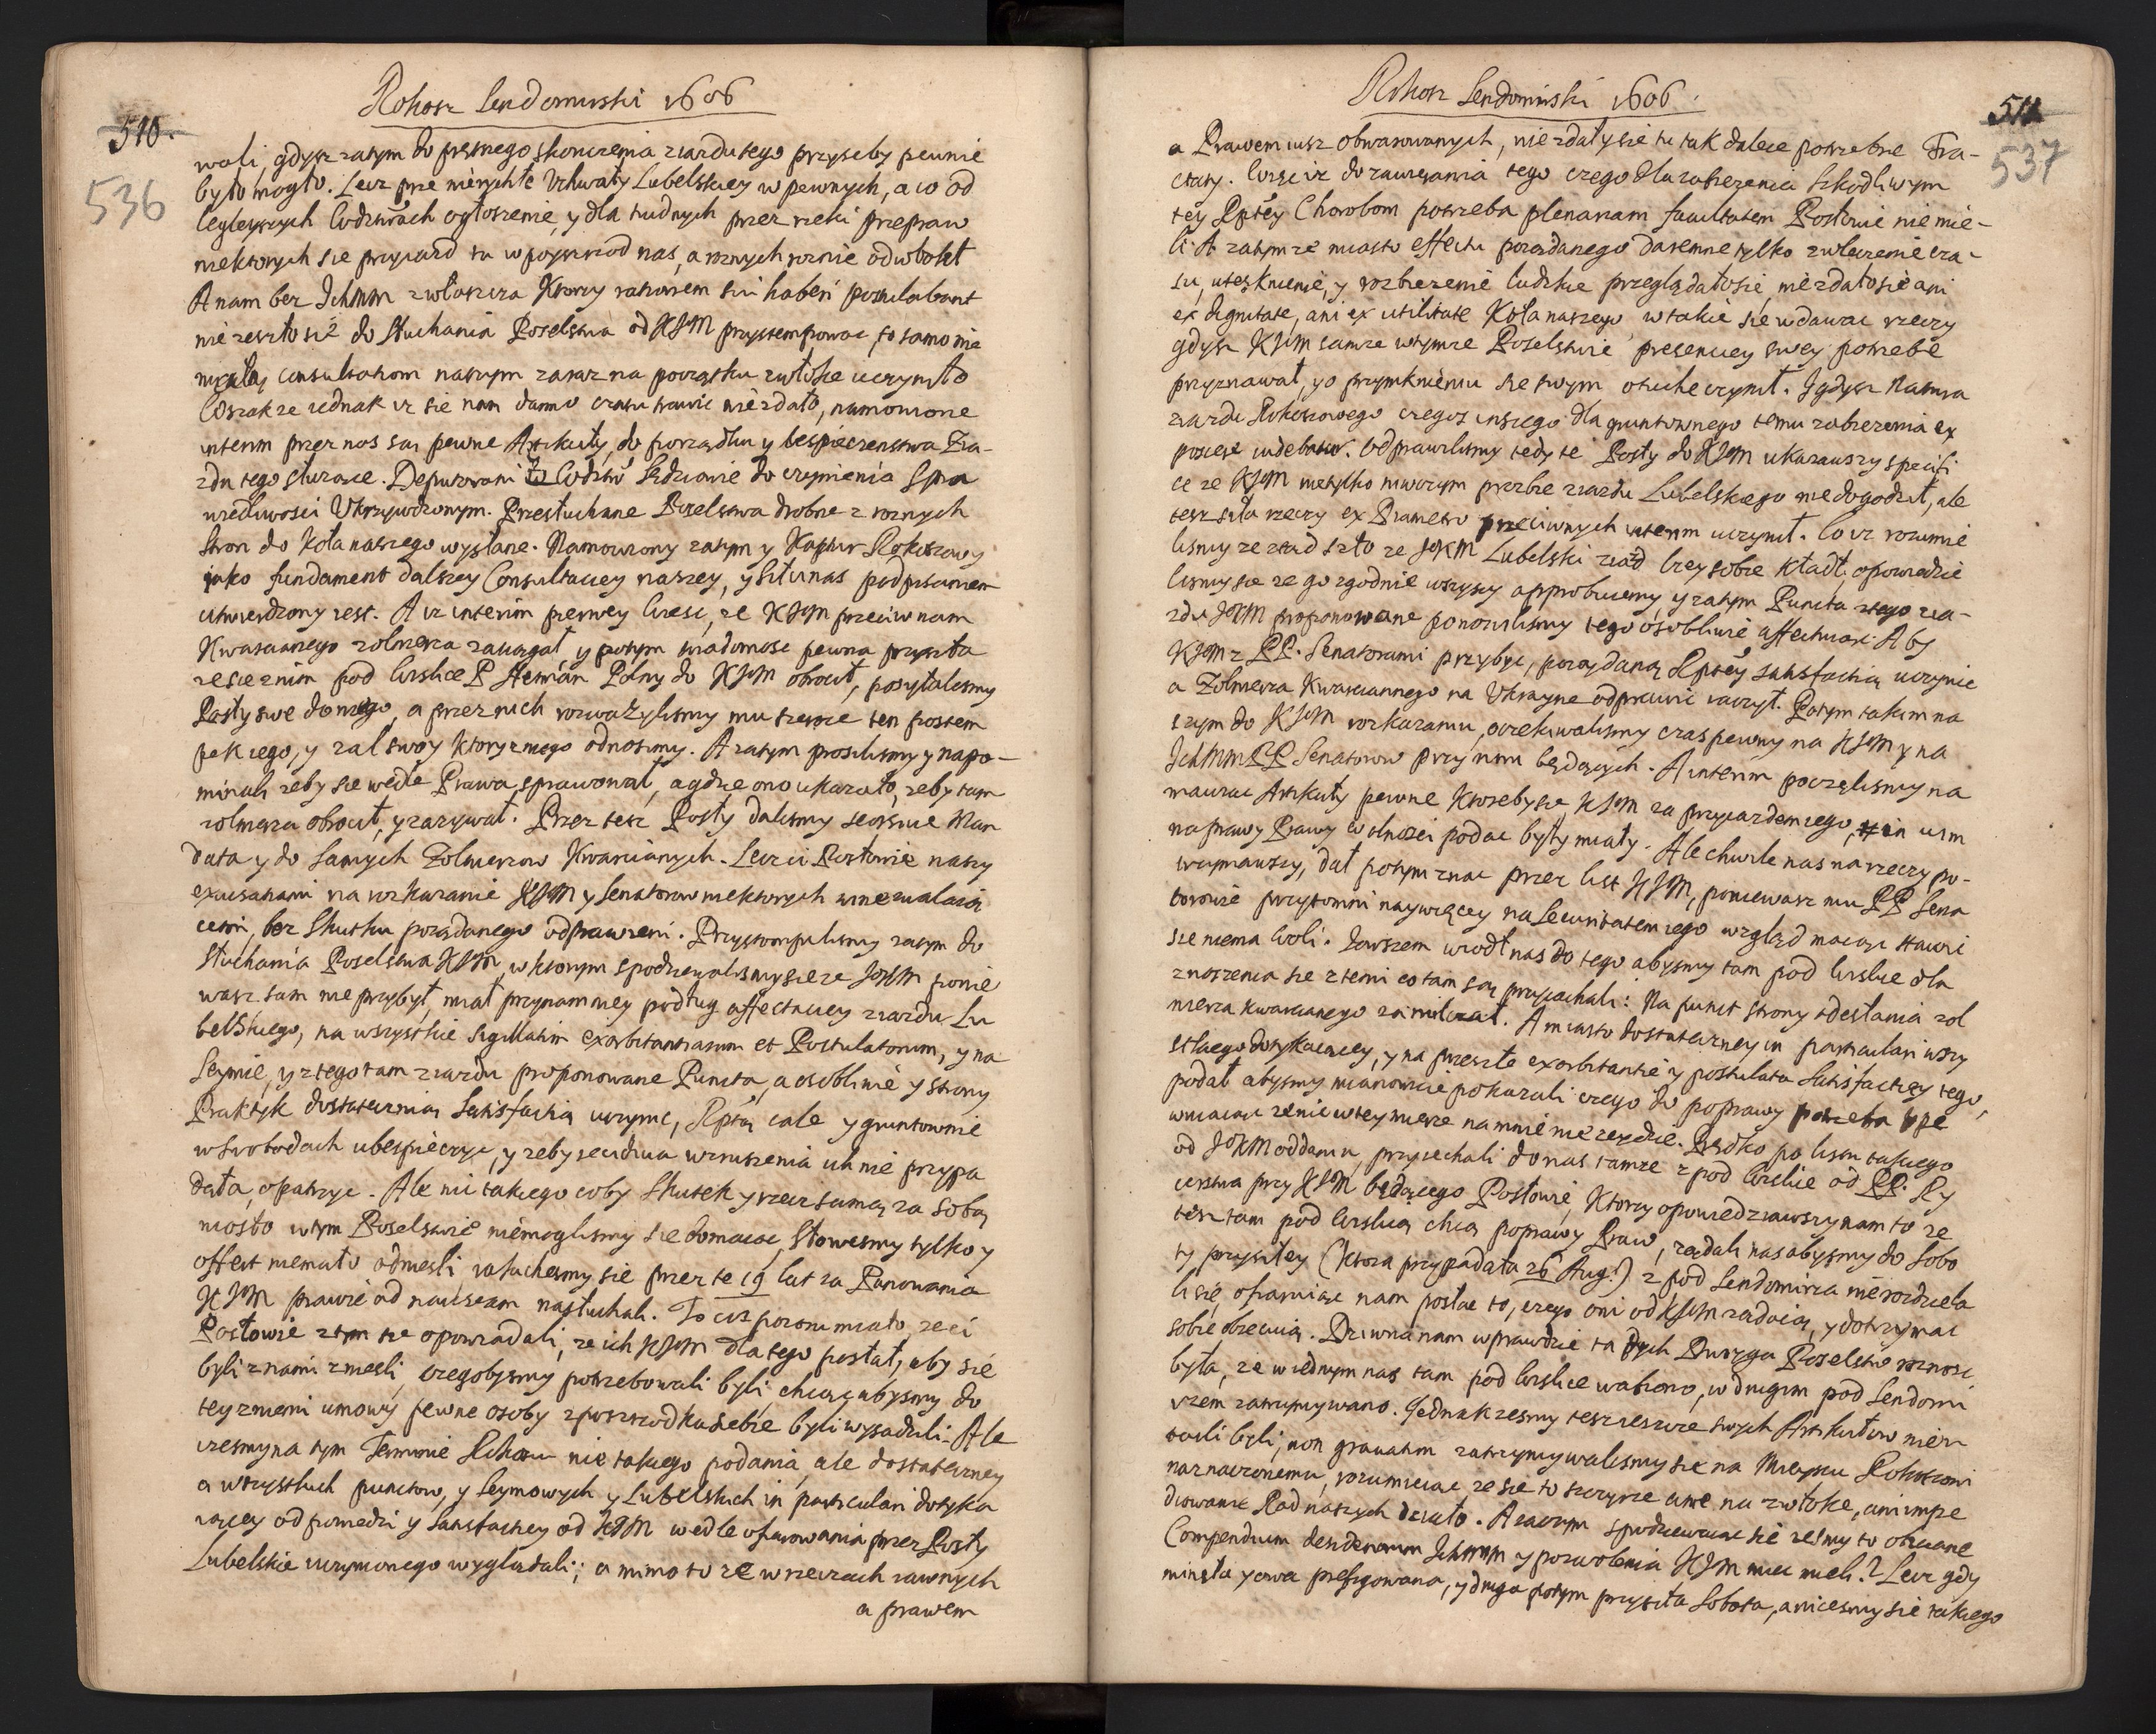 Rokosz Sendomirski 1606
510.
536
wali, gdysz zatym do prętnego skonczenia ziazdu tego przyseby pewnie
było mogło. Lecz prze nierychłe Vchwały Lubelskiey w pewnych, a co od
legleyszych Wodztwach ogłoszenie, y dla trudnych przez rzeki przepraw
niektorych sie przyiazd tu w poyszrzod nas, a roznych roznie odwlokł
A nam bez IchMM zwłaszcza Ktorzy rationem sui haberi postulabant
nie zeszło się do słuchania Poselstwa od KJM przystempowac, to samo nie
małą consultatiom naszym zaraz na początku zwłokę uczyniło
Wszakze iednak iz sie nam darmo czasu trawic nie zdało, namowione
interim przez nas są pewne Artikuły, do porządku y bespieczenstwa Zia-
zdu tego służące. Deputowani z Wodztw Sędziowie do czynienia Spra
wiedliwosci Vkrzywdzonym. Przesłuchane Poselstwa drobne z roznych
stron do Koła naszego wysłane. Namowiony zatym y Kaptur Rokoszowy
iako fundament dalszey Consultacyey naszey, y s̄ilu nas podpisaniem
utwierdzony iest. A iz interim pierwey wiesc, ze KJM przeciw nam
Kwarcianego zolnierza zaciągał y potym wiadomosc pewna przyszła
ze sie z nim pod Wislicę P Hetman Polny do KJM obrocił, posyłalismy
Posły swe do niego, a przez nich rozważylismy mu szerzie ten postem
pek iego, y zal swoy ktory z niego odnosimy. A zatym prosilismy y napo-
minali zeby sie wedle Prawa sprawował, a gdzie ono ukazało, zeby tam
zolnierza obrocił, y zazywał. Przez tesz Posły dalismy seorsiue Man
data y do samych Zolnierzow Kwarcianych. Lecz ci Posłowie naszy
excusatiami na rozkazanie KJM y Senatorow niektorych winę zwalaiąc
cemi, bez skutku porządanego odprawieni. Przystompilismy zatym do
słuchania Poselstwa KJM, w ktorym spodziewalismy sie ze JKM ponie
wasz sam nie przybył, miał przynamniey podług affectaciey ziazdu Lu
belskiego, na wszystkie sigillatim exorbitantiarum et Postulatorum, y na
Seymie, y z tego tam ziazdu proponowane Puncta, a osobliwie y strony
Praktyk dostateczniaą satisfactią uczynic, Rptą cale y gruntownie
w swobodach ubespieczyc, y zeby recidiua wzruszenia ich nie przypa
dała, opatrzyc. Ale nic takiego coby skutek y rzecz samą za sobą
niosło w tym Poselstwie niemoglismy sie domacac, słowesmy tylko y
offert niemało odniesli ktorychesmy sie przez te 19 lat za Panowania
KJM prawie ad nauseam nasłuchali. To iusz porozumiało, ze ci
Posłowie z tym sie opowiadali, ze ich KJM dla tego posłał, aby się
byli z nami zniesli, czegobysmy potrzebowali byli, chcąc abysmy do
tey z niemi umowy pewne osoby z poszrzodku siebie byli wysadzili. Ale
izesmy na tym Terminie Rokoszu nie takiego podania, ale dostateczney
a wszystkich punctow, y Seymowych y Lubelskich in particulari dotyka
iącey odpowiedzi y satisfactiey od KJM wedle ofiarowania przez Posły
Lubelskie uczynionego wyglądali; a mimo to ze w rzeczach iawnych
a prawem
Rokosz Sendomirski 1606.
511
537
a Prawem iusz obwarowanych, nie zdały sie tu tak dalece potrzebne Tra-
ctaty. Więc iz do zawiązania tego czego dla zabiezenia szkodliwym
tey Rptey Chorobom potrzeba plenariam facultatem Posłowie nie mie-
li. A zatym ze miasto effectu porządanego daremne tylko zwleczenie cza-
su, utesknienie, y rozbiezenie ludzkie przeglądało sie, nie zdało sie ani
ex dignitate, ani ex utilitate Koła naszego w takie sie wdawac rzeczy
gdysz KJM samze w tymze Poselstwie presenciey swey potrzebe
przyznawał, y o przymknieniu sie swym otuche czynił. J gdysz Natura
ziazdu Rokoszowego czegos inszego dla gruntownego temu zabiezenia ex
poscere videbatur. Odprawilismy tedy te Posły do KJM ukazawszy specifi
ce ze KJM nietylko niwczym prozbie ziazdu Lubelskiego nie dogodził, ale
tesz siła rzeczy ex Diametro przeciwnych interim uczynił. Co iz rozumie
lismy ze ztąd szło ze JKM Lubelski ziazd lzey sobie kładł, opowiedzie
lismy sie ze go zgodnie wszyscy approbuiemy, y zatym Puncta z tego zia-
zdu JKM proponowane ponowilismy tego osobliwie affectuiąc: Aby
KJM z PP. Senatorami przybyc, porządaną Rptey satisfactią uczynic
a Zolnierza Kwarcianego na Vkrainę odprawic raczył. Potym takim na
szym do KJM wskazaniu, oczekiwalismy czas pewny na KJM y na
IchMM PP Senatorow przy nim będących. A interim poczęlismy na
mawiac Artikuły pewne Ktoreby sie KJM za przyiazdem iego, in vim
naprawy Prawy Wolnosci podac były miały. Ale chwile nas na rzeczy po-
trzymawszy, dał potym znac przez list KJM, poniewasz mu PP Sena
torowie przytomni naywięcey na Securitatem iego wzgląd maiąc stawic
sie niema Woli. Zawszem wiodł nas do tego abysmy tam pod Wislice dla
znoszenia sie z temi co tam są przyiachali: Na punct strony odesłania zol
nierza kwarcianego zamilczał. A miasto dostateczney in particulari wszy
stkiego dotykaiącey, y na przeszłe exorbitantie y postulata satisfactiey tego,
podał abysmy mianowicie pokazali czego do poprawy potrzeba
wmawiaiac ze nic w tey mierze na mnie nie zeydzie. Prędko po listu takiego
od JKM oddaniu, przyiechali do nas tamze z pod Wislice od PP. Ry
cerstwa przy KJM będącego Posłowie, Ktorzy opowiedziawszy nam to ze
tesz tam pod Wislicą chcą poprawy Praw, ządali nas abysmy do Sobo
ty przyszłey (ktora przypadała 26 Aug:) z pod Sendomirza nie rozdziela
li się, ofiaruiąc nam posłac to, czego oni od KJM ządaią, y dotrzymac
sobie obiecuią. Dziwna nam wprawdzie ta dych Dwoyga Poselstw roznosc
była, ze w iednym nas tam pod Wislice wabiono, w drugim pod Sendomi
rzem zatrzymywano. Jednakzesmy tesz ieszcze swych Artikułow nieza
warli byli, non grauatim zatrzymywalismy sie na Mieyscu Rokoszowi
naznaczonemu, rozumieiąc ze sie to szczyrze a nie na zwłoke, ani impe
diowanie Rad naszych działo. A zaczym spodziewaiąc sie zesmy to obiecane
Compendium desideriorum IchMM y pozwolenia KJM miec mieli? Lecz gdy
minęła y owa prefigowana, y druga potym przyszła Sobota, a niceśmy sie takiego